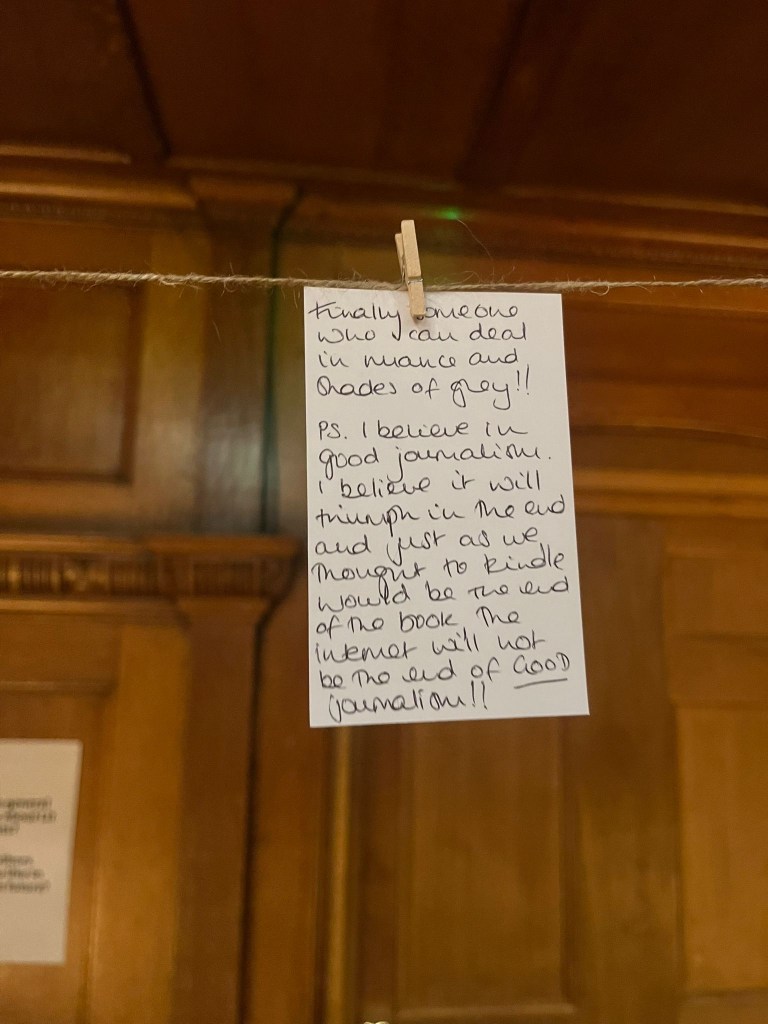 Finally someone
who can deal
in nuance and
shades of grey!!
PS. I believe in
good journalism.
I believe it will
triumph in the end
and just as we
thought to kindle
would be the end
of the book the
internet will not
be the end of GOOD
journalism!!
general